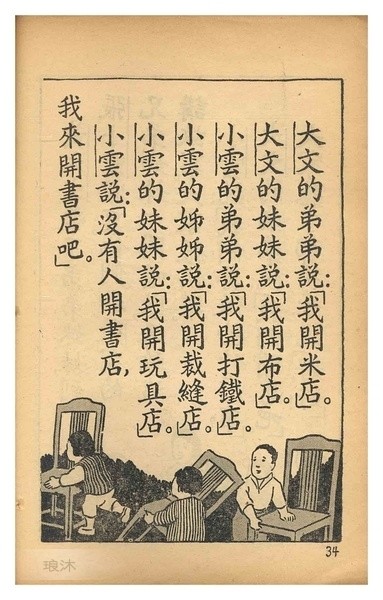 大文的弟弟說：「我開米店。」
大文的妹妹說：「我開布店。」
小雲的弟弟說：「我開打鐵店。」
小雲的姊姊說：「我開裁縫店。」
小雲的妹妹說：「我開玩具店。」
小雲說：「沒有人開書店，
我來開書店吧。」
34
琅沐